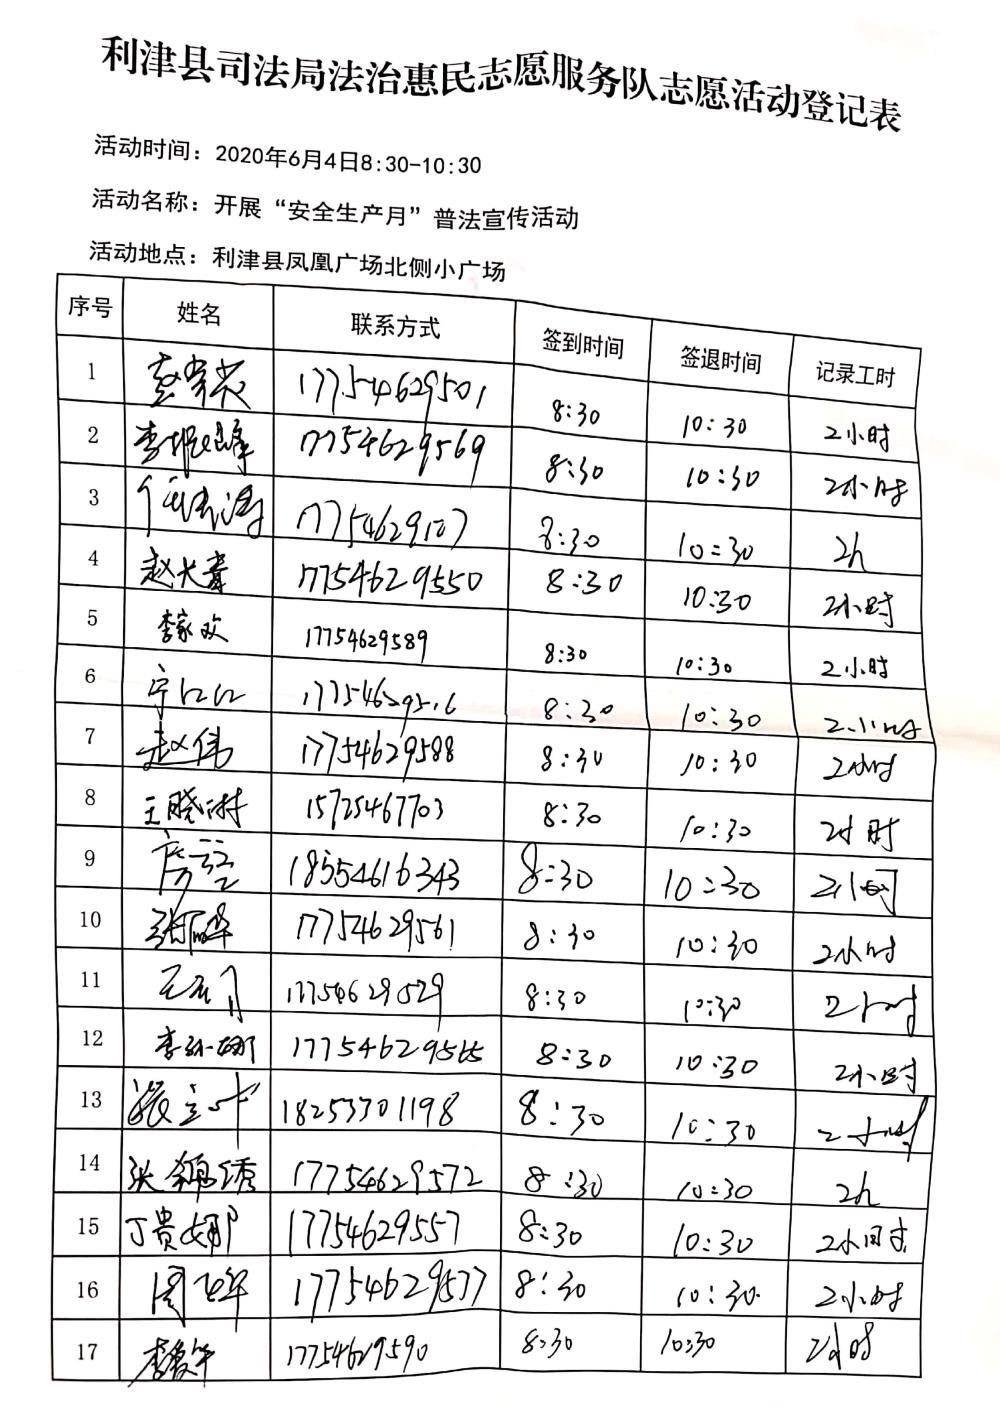 利津县司法局法治惠民志愿服务队志愿活动登记表
活动时间：2020年6月4日8:30-10:30
活动名称：开展“安全生产月”普法宣传活动
活动地点：利津县凤凰广场北侧小广场
序号 姓名 联系方式 签到时间 签退时间 记录工时
1 17754629501 8:30 10:30 2小时
2 李 峰 17754629569 8:30 10:30 2小时
3 任 涛 8:30 10:30 2h
4 赵大青 17754629550 8:30 10:30 2小时
5 李家欢 17754629589 8:30 10:30 2小时
6 宁江江 8:30 10:30 2小时
7 赵伟 17754629588 8:30 10:30 2小时
8 王晓 15725467703 8:30 10:30 2小时
9 房 18554616343 8:30 10:30 2小时
10 张 17754629561 8:30 10:30 2小时
11 王 17754629529 8:30 10:30 2小时
12 李 娜 8:30 10:30 2小时
13 张立 18253701198 8:30 10:30 2小时
14 张锦绣 17754629572 8:30 10:30 2h
15 丁贵娜 17754629557 8:30 10:30 2小时
16 周 17754629577 8:30 10:30 2小时
17 李 17754629590 8:30 10:30 2小时